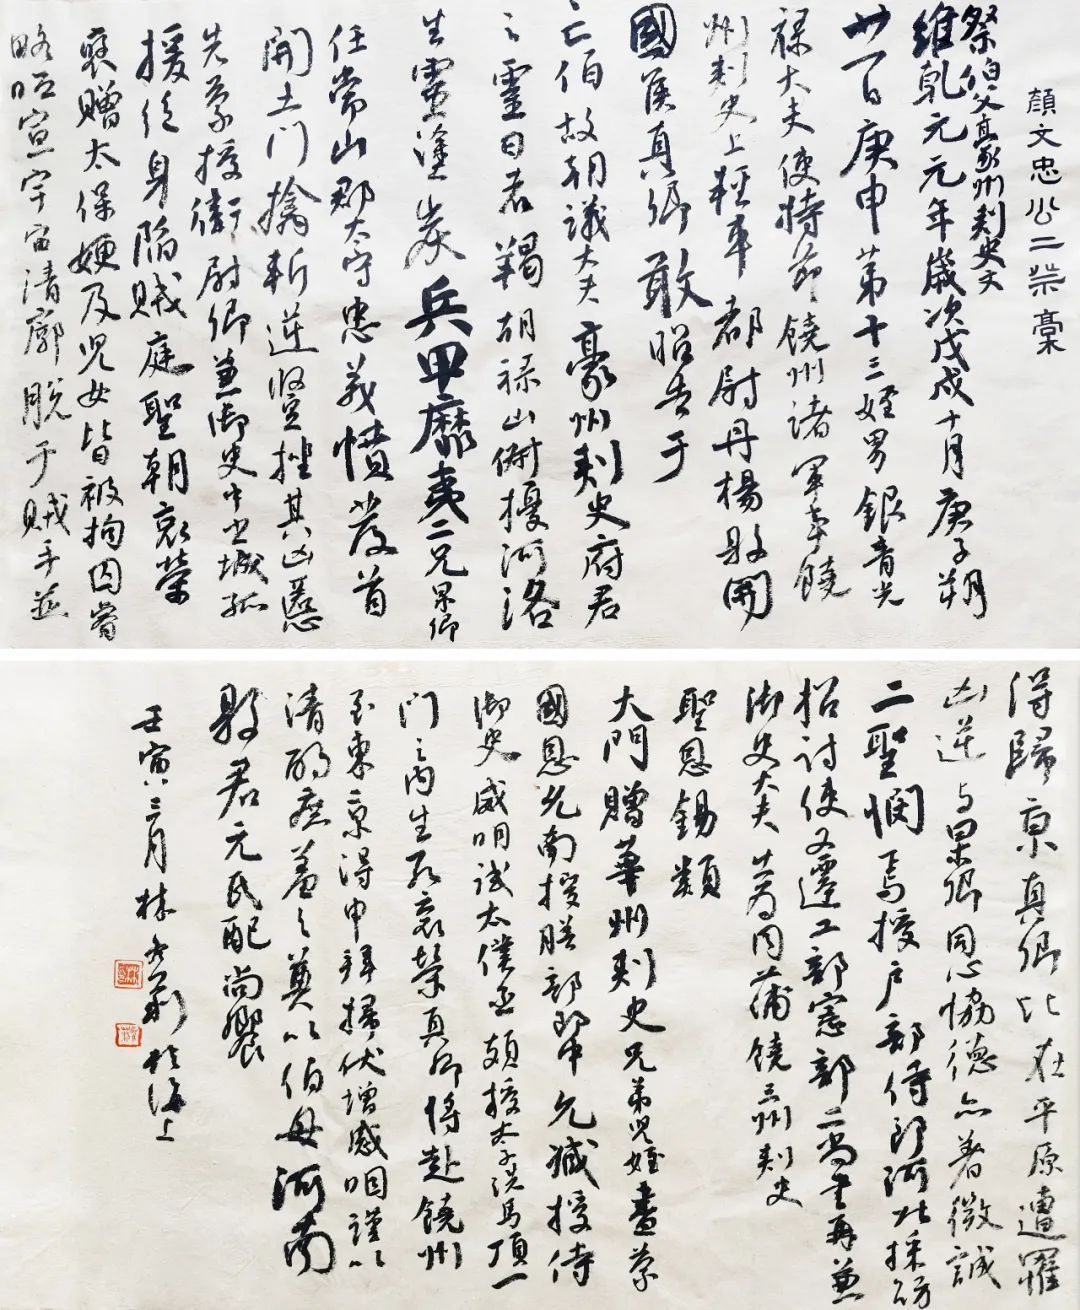 顔文忠公二祭稾
祭伯父豪州刺史文
維乾元元年歲次戊戌十月庚子朔
廿一日庚申第十三姪男銀青光
祿大夫使持節饒州諸軍事饒
州刺史上輕車都尉丹楊縣開
國侯真卿敢昭告于
亡伯故朝議大夫豪州刺史府君
之靈曰者羯胡祿山俶擾河洛
生靈塗炭兵甲靡夷二兄杲卿
任常山郡太守忠義憤發首
開土門擒斬逆豎挫其凶慝
先蒙授衛尉卿兼御史中丞城孤
援絕身陷賊庭聖朝哀榮
褒贈太保嫂及兒女皆被拘囚嘗
略咂宣宇宙清廓脫于賊手並
得歸京真卿比在平原遭罹
凶逆與杲卿同心協德亦著微誠
二聖憫焉授戶部侍郎河北採訪
招討使又遷工部憲部二尚書再兼
御史大夫出為同蒲饒三州刺史
聖恩錫類
大門贈華州刺史兄弟兒姪盡蒙
國恩允南授膳部郎中允臧授侍
御史威明試太僕丞頗授太子洗馬頂一
門之內生死哀榮真卿將赴饒州
至東京得申拜掃伏增感咽謹以
清酌庶羞之奠以伯母河南
縣君元氏配尚饗
壬寅三月林 於海上